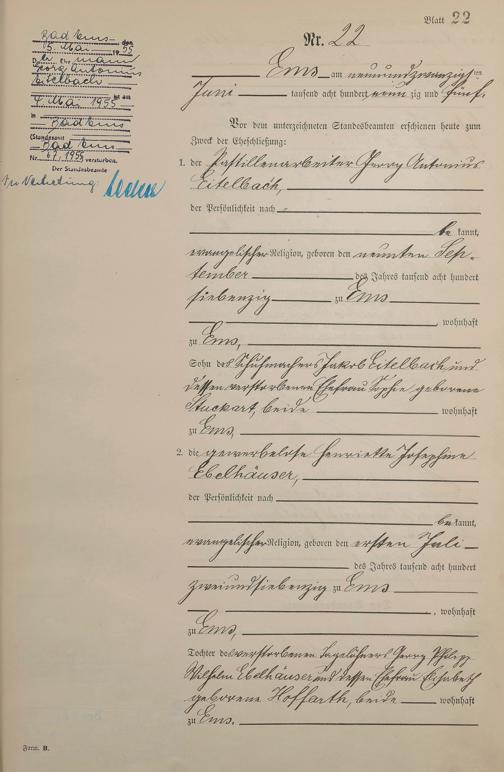 Blatt 22
Nr. 22
Ems am neunundzwanzigsten
Juni tausend acht hundert neunzig und fünf.
Vor dem unterzeichneten Standesbeamten erschienen heute zum
Zweck der Eheschließung:
1. der Pastillenarbeiter Georg Antonius
Eitelbach,
der Persönlichkeit nach
be kannt,
evangelischer Religion, geboren den neunten Sep-
tember des Jahres tausend acht hundert
siebenzig zu Ems
, wohnhaft
zu Ems,
Sohn des Schuhmachers Jakob Eitelbach und
dessen verstorbenen Ehefrau Sophie geborene
Stuckart, beide wohnhaft
zu Ems,
2. die gewerbelose Henriette Josephine
Ebelhäuser,
der Persönlichkeit nach
be kannt,
evangelischer Religion, geboren den ersten Juli
des Jahres tausend acht hundert
zweiundsiebenzig zu Ems
, wohnhaft
zu Ems,
Tochter des verstorbenen Tagelöhners Georg Philipp
Wilhelm Ebelhäuser und dessen Ehefrau Elisabeth
geborene Hoffarth, beide wohnhaft
zu Ems.
Bad Ems den
15. Mai 1955
Der Ehemann
Georg Antonius
Eitelbach
ist am
4. Mai 1955
in Bad Ems
(Standesamt
Bad Ems
Nr. 1955 verstorben.
Der Standesbeamte
In Vertretung
Form. B.